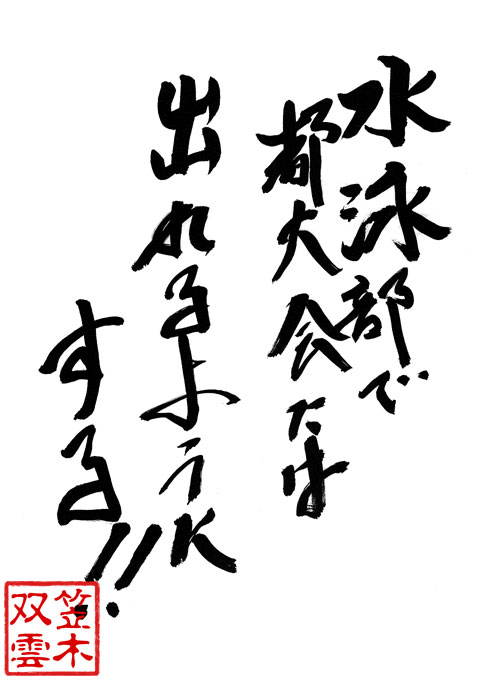 水泳部で
都大会には
出れるように
する!!
笠木
双雲